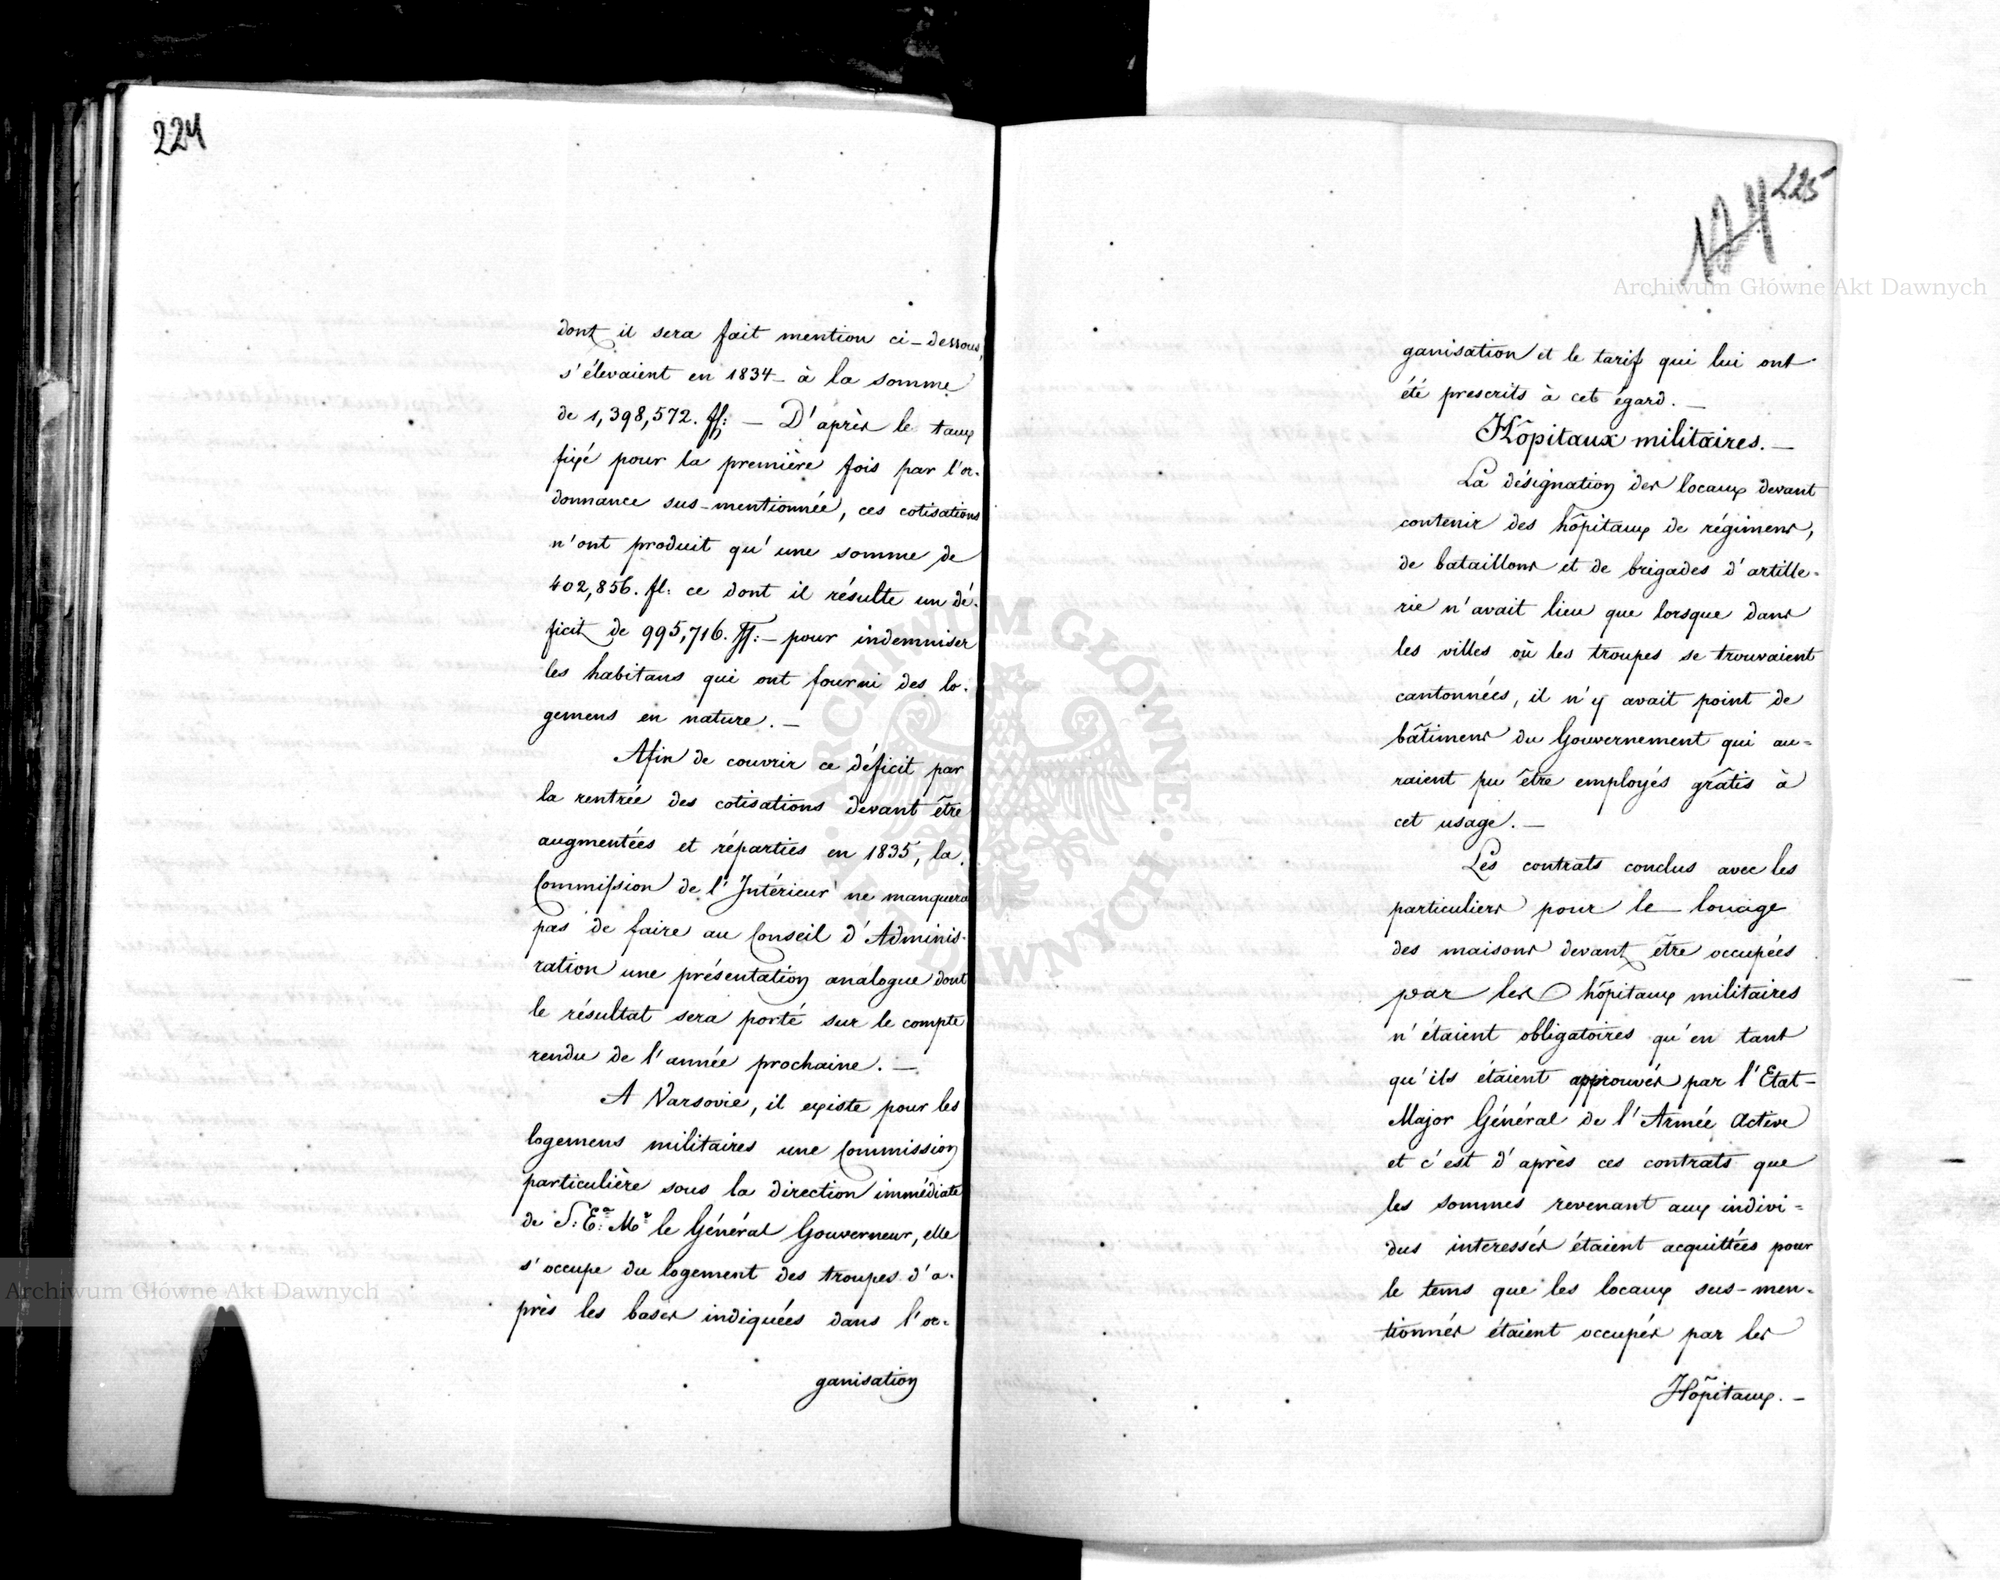 224
dont il sera fait mention ci-dessous,
s'élevaient en 1834 à la somme
de 1,398,572. ff: — D'après le taux
fixé pour la première fois par l'or-
donnance sus-mentionnée, ces cotisations
n'ont produit qu'une somme de
402,856. fl: ce dont il résulte un dé-
ficit de 995,716. ff: — pour indemniser
les habitans qui ont fourni des lo-
gemens en nature. —
Afin de couvrir ce déficit par
la rentrée des cotisations devant être
augmentées et réparties en 1835, la
Commission de l'Intérieur ne manquera
pas de faire au Conseil d'Adminis-
ration une présentation analogue dont
le résultat sera porté sur le compte
rendu de l'année prochaine. —
A Varsovie, il existe pour les
logemens militaires une Commission
particulière sous la direction immédiate
de S: E: Mr le Général Gouverneur, elle
s'occupe du logement des troupes d'a-
près les bases indiquées dans l'or-
ganisation
225
124
ganisation et le tarif qui lui ont
été prescrits à cet égard. —
Hôpitaux militaires. —
La désignation des locaux devant
contenir des hôpitaux de régimens,
de bataillons et de brigades d'artille-
rie n'avait lieu que lorsque dans
les villes où les troupes se trouvaient
cantonnées, il n'y avait point de
bâtimens du Gouvernement qui au-
raient pu être employés grâtis à
cet usage. —
Les contrats conclus avec les
particuliers pour le louage
des maisons devant être occupées
par les hôpitaux militaires
n'étaient obligatoires qu'en tant
qu'ils étaient approuvés par l'Etat-
Major Général de l'Armée Active
et c'est d'après ces contrats que
les sommes revenant aux indivi-
dus interessés étaient acquittées pour
le tems que les locaux sus-men-
tionnés étaient occupés par les
Hôpitaux. —
Archiwum Główne Akt Dawnych
Archiwum Główne Akt Dawnych
ARCHIWUM GŁÓWNE AKT DAWNYCH